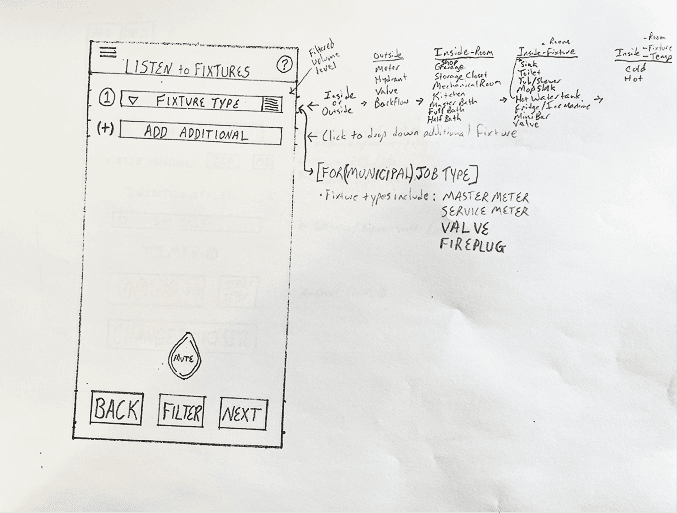 LISTEN to FIXTURES
?
Filtered
Volume
level
1
FIXTURE TYPE
(+)
ADD ADDITIONAL
MUTE
BACK
FILTER
NEXT
Inside
or
Outside
Outside
Meter
Hydrant
Valve
Backflow
Inside-Room
Shop
Garage
Storage Closet
Mechanical Room
Kitchen
Master Bath
Full Bath
Half Bath
- Room
Inside-Fixture
Sink
Toilet
Tub/Shower
Mop Sink
Hot Water tank
Fridge/Ice Machine
Mini Bar
Valve
- Room
- Fixture
Inside - Temp
Cold
Hot
Click to drop down additional Fixture
[FOR (MUNICIPAL) JOB TYPE]
· Fixture types include: MASTER METER
SERVICE METER
VALVE
FIREPLUG